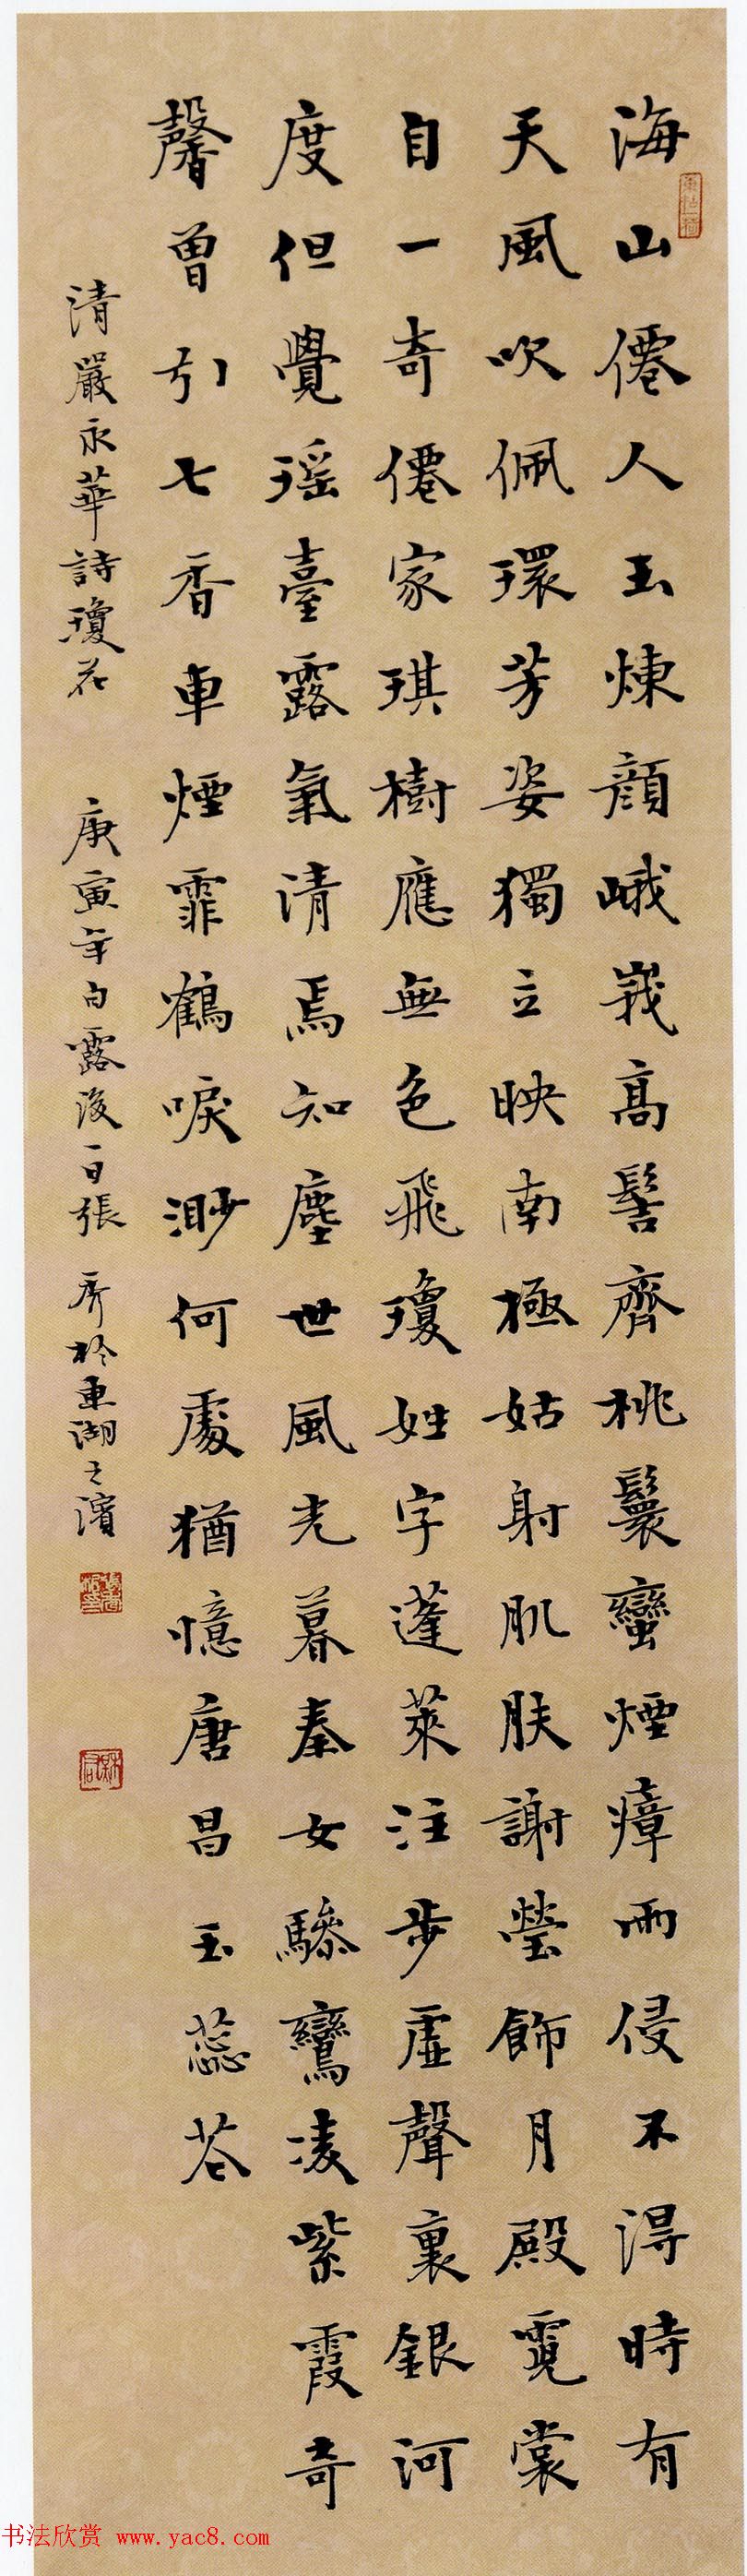 海山僊人玉煉顔峨峩髙髻齊桃鬟蠻煙瘴雨侵不淂時有
天風吹佩環芳姿獨立映南極姑射肌肤謝瑩飾月殿霓裳
自一奇僊家琪樹應無色飛瓊姓字蓬萊注步虛聲裏銀河
度但覺瑶臺露氣清焉知塵世風光暮秦女驂鸞凌紫霞奇
馨曽引七香車煙霏鶴唳渺何處猶憶唐昌玉蕊花
清嚴永華詩瓊花 庚寅年白露後一日張 於東湖之濱
书法欣赏 www.yac8.com